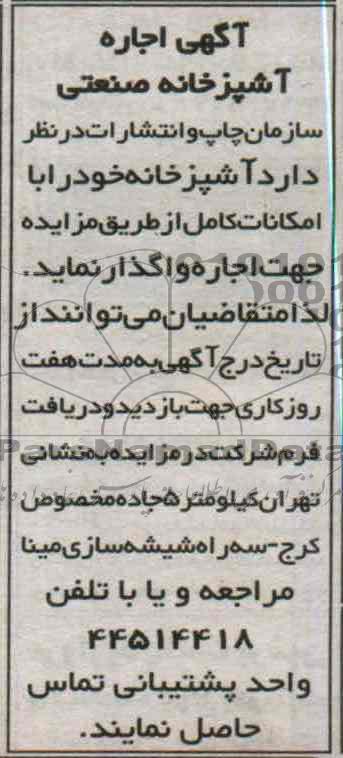 آگهی اجاره
آشپزخانه صنعتی
سازمان چاپ و انتشارات در نظر
دارد آشپزخانه خود را با
امکانات کامل از طریق مزایده
جهت اجاره واگذار نماید.
لذا متقاضیان می توانند از
تاریخ درج آگهی به مدت هفت
روز کاری جهت بازدید و دریافت
فرم شرکت در مزایده به نشانی
تهران کیلومتر ۵ جاده مخصوص
کرج - سه راه شیشه سازی مینا
مراجعه و یا با تلفن
۴۴۵۱۴۴۱۸
واحد پشتیبانی تماس
حاصل نمایند.